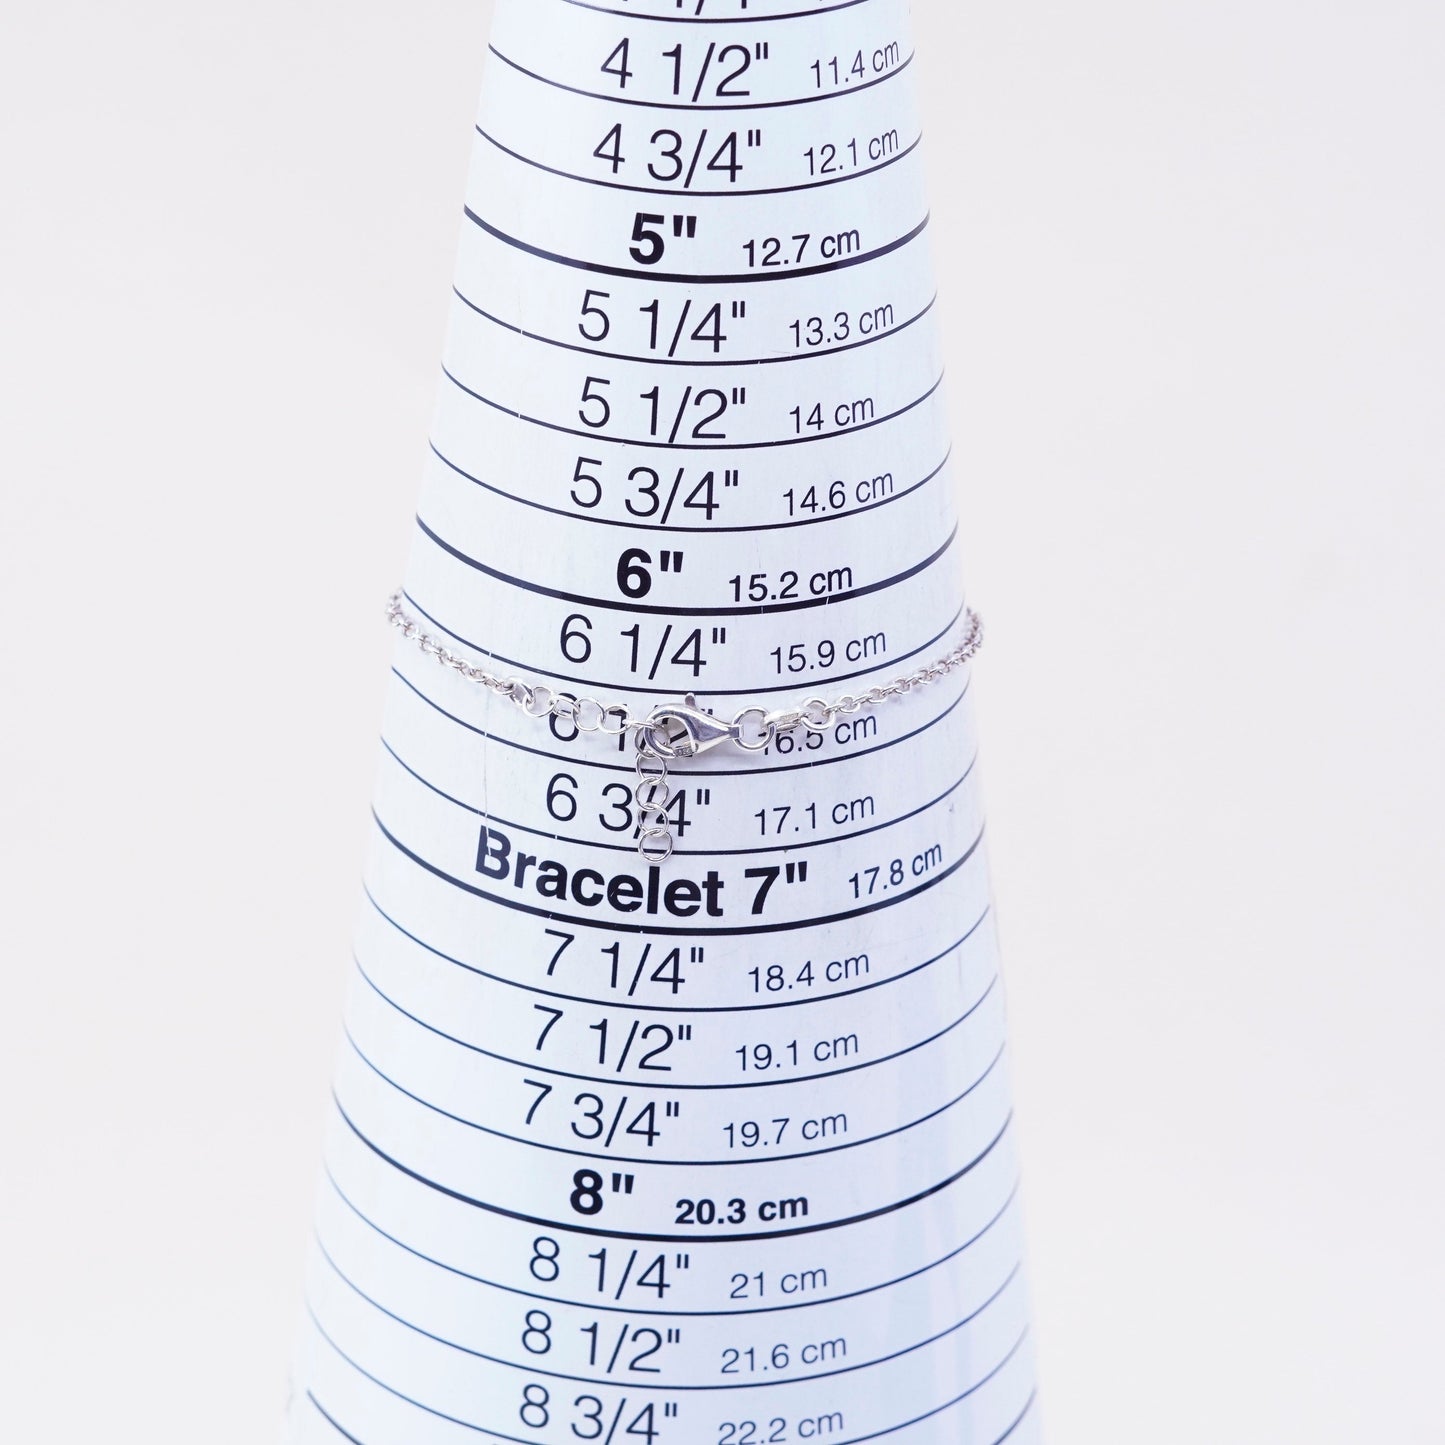 4 1/2" 11.4 cm
4 3/4" 12.1 cm
5" 12.7 cm
5 1/4" 13.3 cm
5 1/2" 14 cm
5 3/4" 14.6 cm
6" 15.2 cm
6 1/4" 15.9 cm
6 1/2" 16.5 cm
6 3/4" 17.1 cm
Bracelet 7" 17.8 cm
7 1/4" 18.4 cm
7 1/2" 19.1 cm
7 3/4" 19.7 cm
8" 20.3 cm
8 1/4" 21 cm
8 1/2" 21.6 cm
8 3/4" 22.2 cm